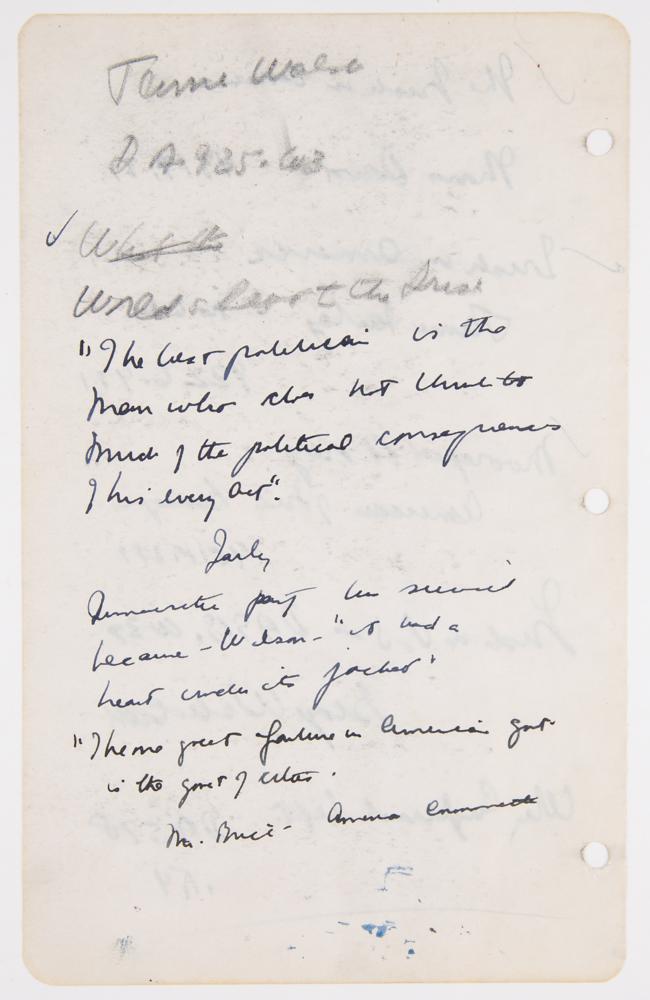 Walsh
D.A. 925. W3
What the
World's Debt to the Irish
"The best politician is the
man who does not think to
much of the political consequences
of his every act".
Farley
Democratic party has survived
because - Wilson - "it had a
heart under its jacket"
"The one great failure in American govt
is the govt of cities.
Mr. Bryce - American Commonwealth